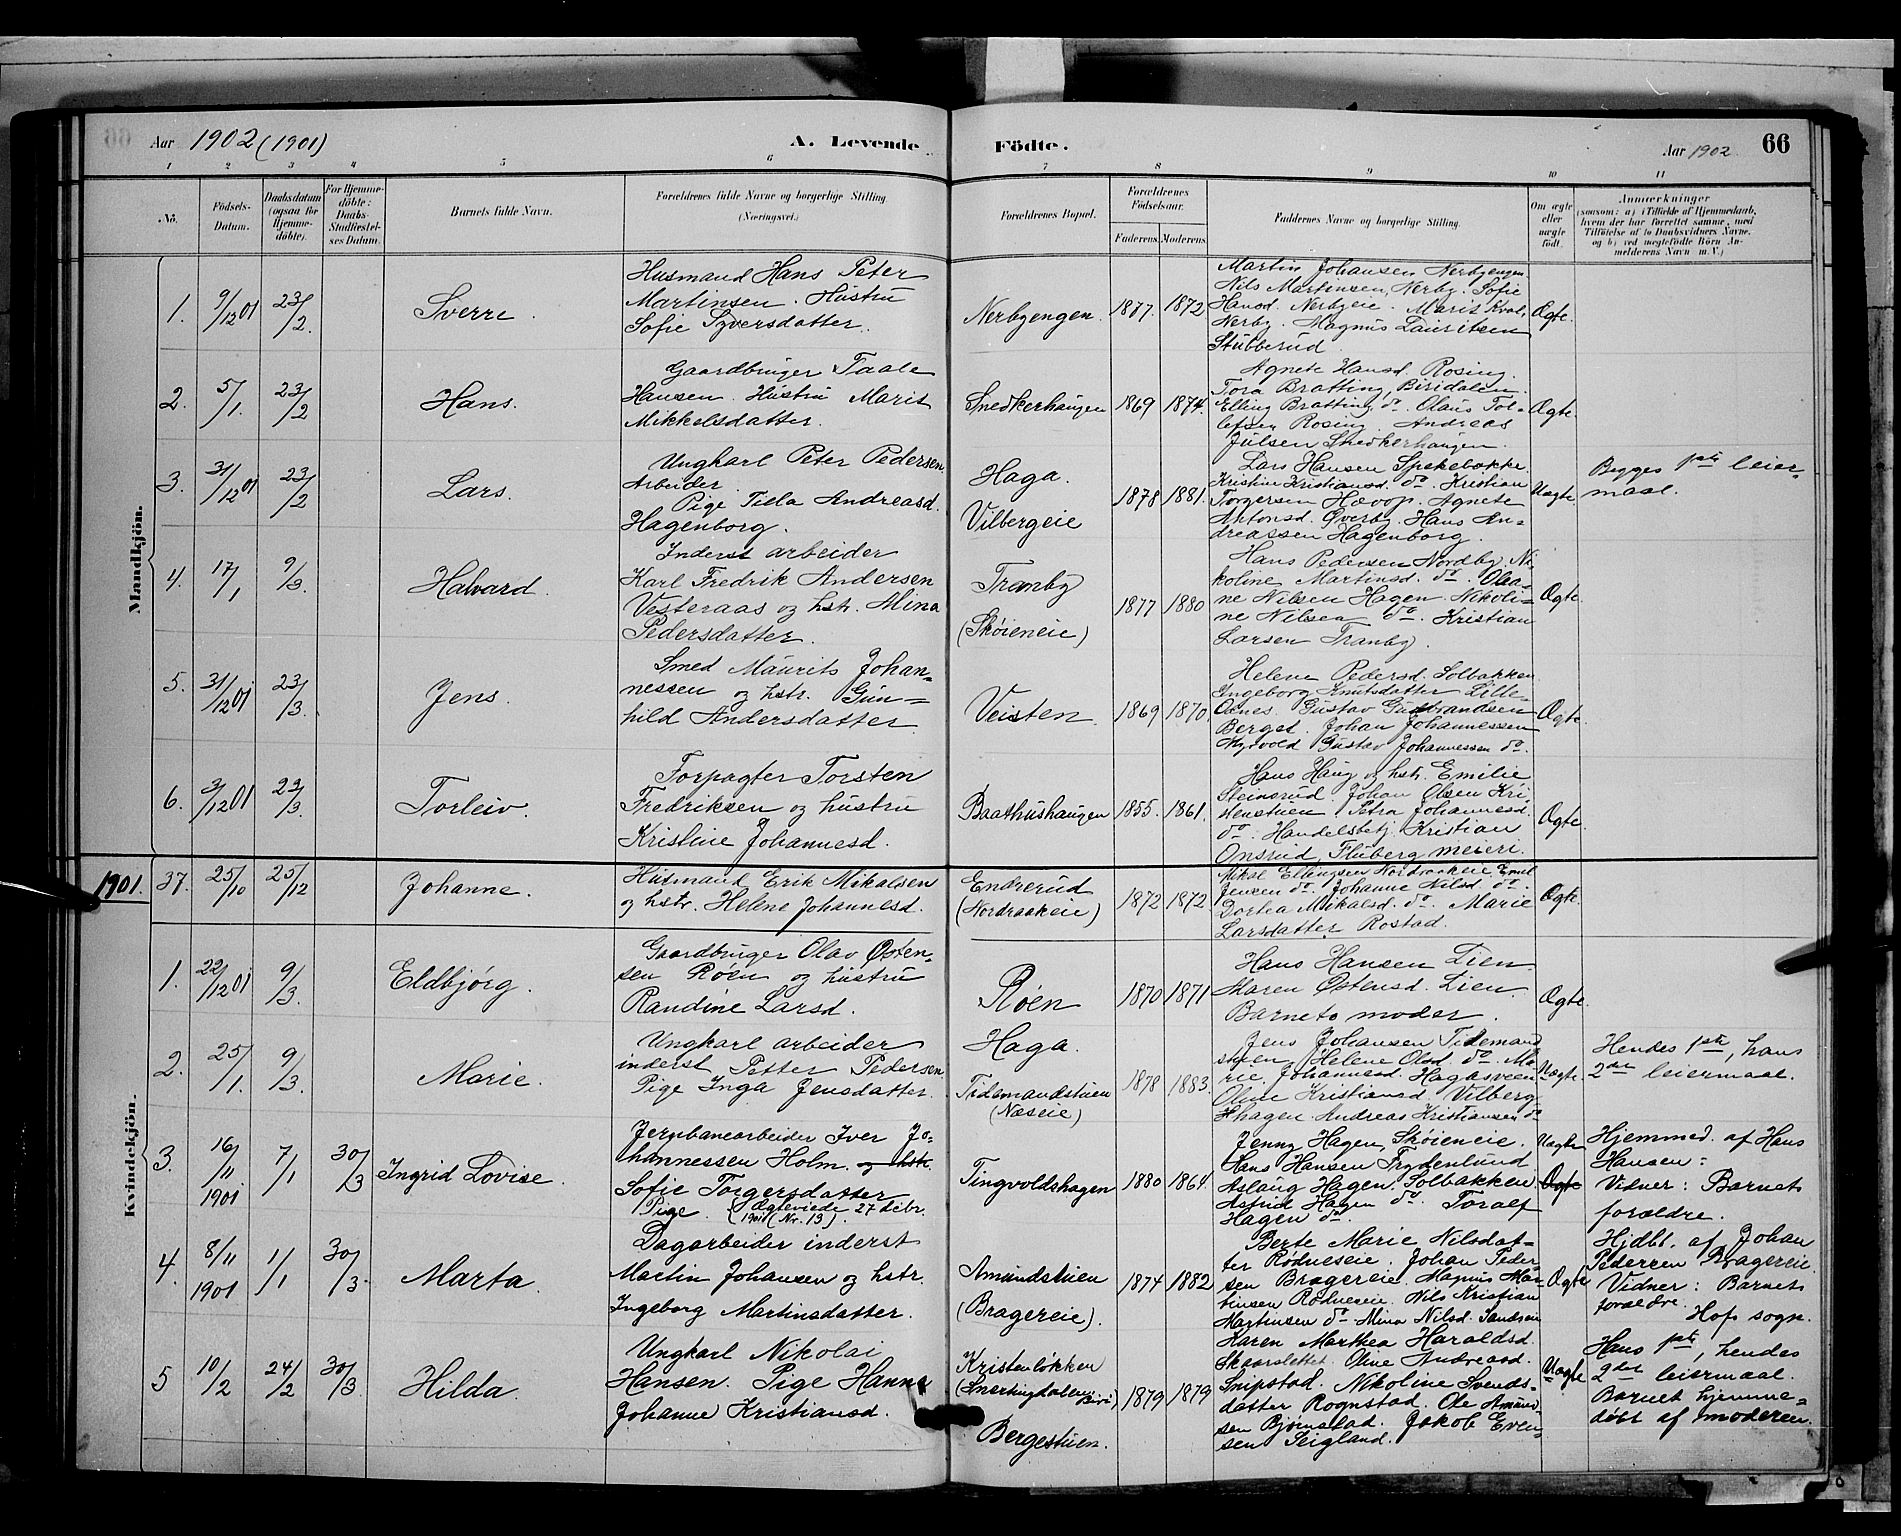 Aar 1902 (1901)
A. Levende
Födte.
Aar 1902
66
1 2 3 4 5 6 7 8 9 10 11
No.
Födsels-
Datum.
Daabsdatum
(ogsaa for
Hjemme-
döbte).
For Hjemme-
döbte:
Daabs-
Stadfæstel-
ses Datum.
Barnets fulde Navn.
Forældrenes fulde Navne og borgerlige Stilling
(Næringsvei.)
Forældrenes Bopæl.
Forældrenes
Födselsaar.
Faderens. Moderens.
Faddernes Navne og borgerlige Stilling.
Om ægte
eller
uægte
født.
Anmærkninger
(saasom: a) i Tilfælde af Hjemmedaab,
hvem der har forrettet samme, med
Tilföielse af to Daabsvidners Navne,
og b) ved uægtefödte Börn An-
melderens Navn m. V.)
Mandkjön.
1. 9/12 01 23/2. Sverre.
Husmand Hans Peter
Martinsen. Hustru
Sofie Syversdatter.
Nerbyengen. 1877. 1872
Martin Johansen Nerbyengen
Nils Martensen, Nerby. Sofie
Hansd. Nerbyeie. Marit Kval,
Nerby. Magnus Lauritsen
Stubberud.
Ægte.
2. 5/1. 23/2 Hans.
Gaardbruger Taale
Hansen. Hustru Marit
Mikkelsdatter.
Snedkerhaugen 1869 1874.
Agnete Hansd. Rosing.
Tora Bratting, Biridalen.
Elling Bratting do. Olaus Tol-
lefsen Rosing. Andreas
Julsen Snedkerhaugen.
Ægte.
3. 31/12 01 23/2 Lars.
Ungkarl Peter Pedersen.
Arbeider.
Pige Tilla Andreasd.
Hagenborg.
Haga.
Vilbergeie
1878 1881.
Lars Hansen Spekebakke.
Kristine Kristiansd. do. Kristian
Torgersen Hovop. Agnete
Antonsd. Øverby. Hans An-
dreassen Hagenborg.
Uægte.
Begges 1ste leier-
maal.
4. 17/1 9/3. Halvard.
Inderst arbeider
Karl Fredrik Andersen
Vesteraas og hstr. Mina
Pedersdatter.
Tranby
(Skøieneie)
1877 1880
Hans Pedersen Nordby. Ni-
koline Martinsd. do. Olea-
ne Nilsen Hagen. Nikoli-
ne Nilsen do. Kristian
Larsen Tranby.
Ægte.
5. 31/12 01 23/3. Jens.
Smed Maurits Johan-
nessen og hstr. Gun-
hild Andersdatter.
Veisten. 1869 1870.
Helene Pedersd. Solbakken.
Ingeborg Knutsdatter Lille-
Odnes. Gustav Gudbrandsen
Berget. Johan Johannessen
Myrvold Gustav Johannessen do.
Ægte.
6. 3/12 01 23/3. Torleiv.
Forpagter Torsten
Fredriksen og hustru
Kristine Johannesd.
Baathushaugen 1855. 1861.
Hans Haug og hstr. Emilie
Steinsrud. Johan Olsen Kri-
stenstuen. Petra Johannesd.
do. Handelsbetj. Kristian
Onsrud, Fluberg meieri.
Ægte.
1901. 37. 25/10 25/12 Johanne.
Husmand Erik Mikalsen
og hstr. Helene Johannesd.
Endrerud
(Nordraakeie)
1872 1872
Mikal Ellingsen Nordraakeie Emil
Jensen do. Johanne Nilsd. do.
Dortea Mikalsd. do. Marie
Larsdatter Rostad.
Ægte.
Kvindekjön.
1. 22/12 01 9/3. Eldbjörg.
Gaardbruger Olav Østen-
sen Røen og hustru
Randine Larsd.
Røen 1870 1871
Hans Hansen Lien.
Maren Østensd. Lien.
Barnets moder.
Ægte.
2. 25/1. 9/3 Marie.
Ungkarl arbeider
inderst Petter Pedersen.
Pige Inga Jensdatter.
Haga.
Tidemandstuen
(Næseie)
1878 1883.
Jens Johansen Tidemand-
stuen, Helene Olsd. do. Ma-
rie Johannesd. Hagasveen
Oline Kristiansd. Vilberg-
shagen. Andreas Kristiansen do
Uægte.
Hendes 1ste, hans
2det leiermaal.
3. 16/11 1901 7/1 30/3 Ingrid Lovise.
Jernbanearbeider Iver Jo-
hannessen Holm. og hstr.
Sofie Torgersdatter
Pige. (Ægteviede 27 debr.
1901 (Nr. 13).
Tingvoldshagen 1880 1864.
Jenny Hagen, Skøieneie.
Hans Hansen Frydenlund
Aslaug Hagen. Solbakken
Astrid Hagen do. Toralf
Hagen do.
Uægte
Ægte
Hjemmed. af Hans
Hansen:
Vidner: Barnets
forældre.
4. 8/11 1901 1/1 30/3. Marta.
Dagarbeider inderst
Martin Johansen og hstr.
Ingeborg Martinsdatter.
Amundstuen
(Bragereie).
1874 1882
Berte Marie Nilsdat-
ter Rødneseie. Johan Peder-
sen Bragereie. Magnus Mar-
tinsen Rødneseie. Nils Kristian
Martinsen do. Mina Nilsd. Sandsen
Ægte
Hjdbt. af Johan
Pedersen Bragereie.
Vidner: Barnets
forældre.
Hofs sogn.
5 10/2 24/2 30/3. Hilda.
Ungkarl Nikolai
Hansen. Pige Hanna
Johanne Kristiansd.
Kristenløkken
(Snertingdalen, Biri)
Bergestuen.
1879 1879
Karen Marthea Haraldsd.
Skaarslettet. Oline Andreasd.
Snipstad. Nikoline Svends-
datter Rognstad. Ole Amund-
sen Bjørnstad. Jakob Even-
sen Seigland.
Uægte
Hans 1ste, hendes
2det leiermaal.
Barnet hjemme-
døbt af moderen.